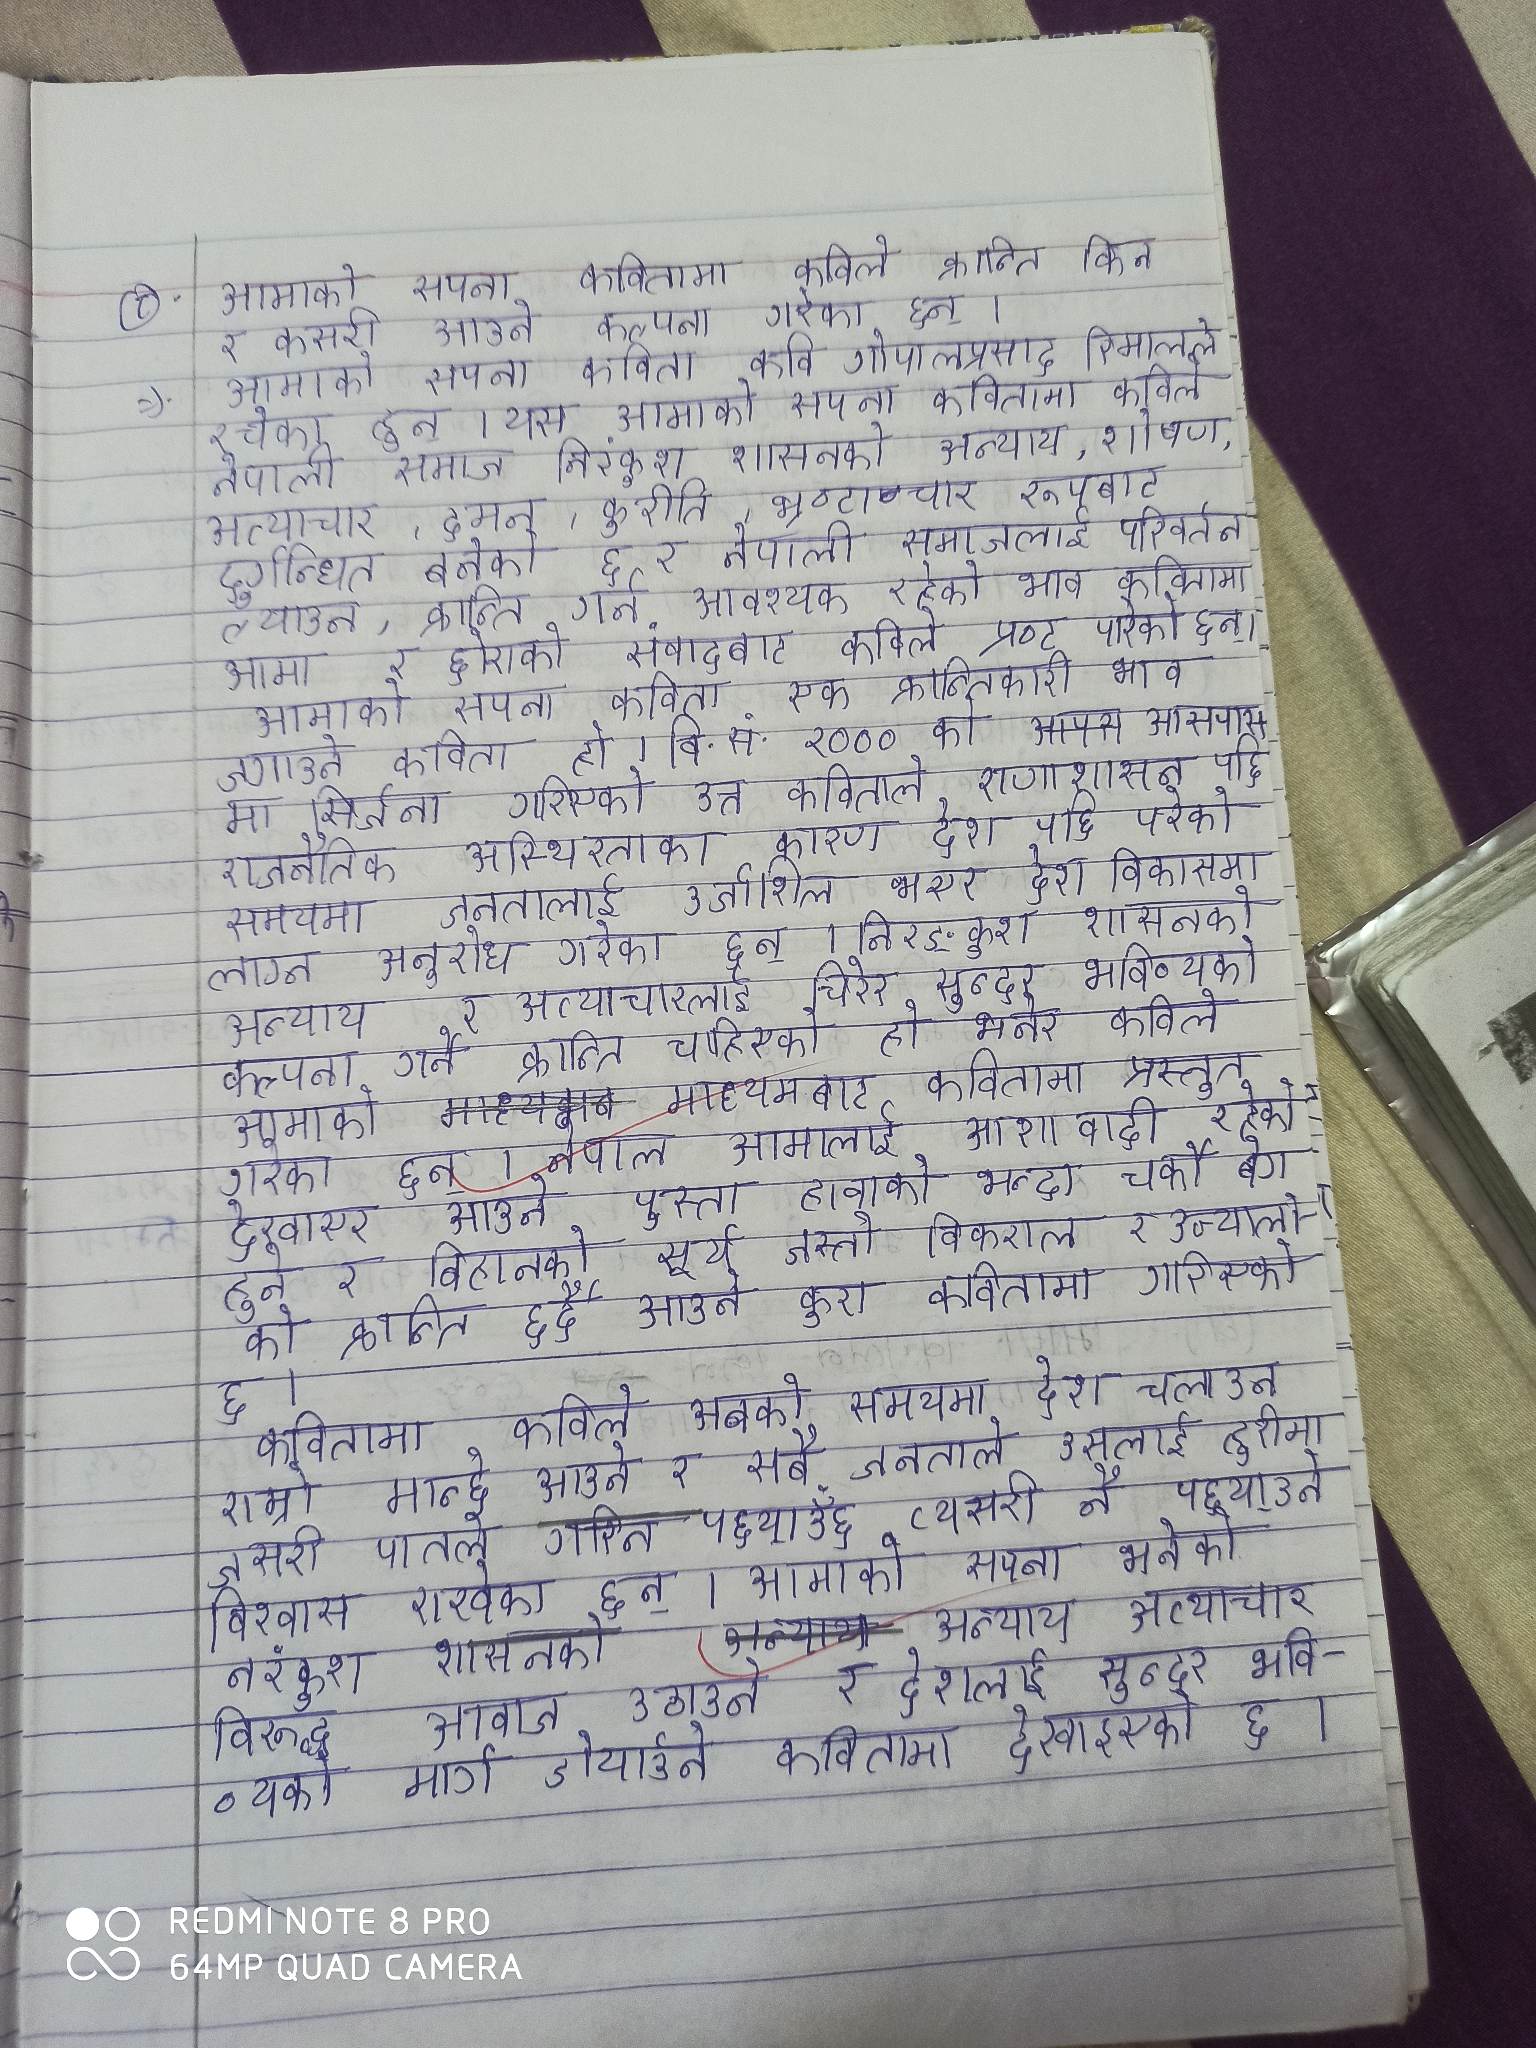 ७. आमाको सपना कवितामा कविले क्रान्ति किन
र कसरी आउने कल्पना गरेका छन् ।
=). आमाको सपना कविता कवि गोपालप्रसाद रिमालले
रचेका हुन् । यस आमाको सपना कवितामा कविले
नेपाली समाज निरंकुश शासनको अन्याय, शोषण,
अत्याचार, दमन, कुरीति, भ्रष्टाचार रूपबाट
दुर्गन्धित बनेको छ र नेपाली समाजलाई परिवर्तन
ल्याउन, क्रान्ति गर्न आवश्यक रहेको भाव कवितामा
आमा र छोराको संवादबाट कविले प्रष्ट पारेको छन् ।
आमाको सपना कविता एक क्रान्तिकारी भाव
जगाउने कविता हो । वि.सं. २००० को आसपास
मा सिर्जना गरिएको उक्त कविताले राणाशासन पछि
राजनैतिक अस्थिरताका कारण देश पछि परेको
समयमा जनतालाई उर्जाशिल भएर देश विकासमा
लाग्न अनुरोध गरेका छन् । निरङ्कुश शासनको
अन्याय र अत्याचारलाई चिरेर सुन्दर भविष्यको
कल्पना गर्ने क्रान्ति चाहिएको हो भनेर कविले
आमाको माध्यमबाट कवितामा प्रस्तुत
गरेका छन् । नेपाल आमालाई आशावादी रहेको
देखाएर आउने पुस्ता हावाको भन्दा चर्को बेग
हुने र विहानको सूर्य जस्तो विकराल र उज्यालो-
को क्रान्ति छर्दै आउने कुरा कवितामा गरिएको
छ ।
कवितामा कविले अबको समयमा देश चलाउन
राम्रो मान्छे आउने र सबै जनताले उसलाई हुरीमा
जसरी पातले पछ्याउँछ त्यसरी नै पछ्याउने
विश्वास राखेका छन् । आमाको सपना भनेको
नरंकुश शासनको अन्याय अत्याचार
विरूद्ध आवाज उठाउने र देशलाई सुन्दर भवि-
ष्यको मार्ग डोर्याउने कवितामा देखाइएको छ ।
REDMI NOTE 8 PRO
64MP QUAD CAMERA